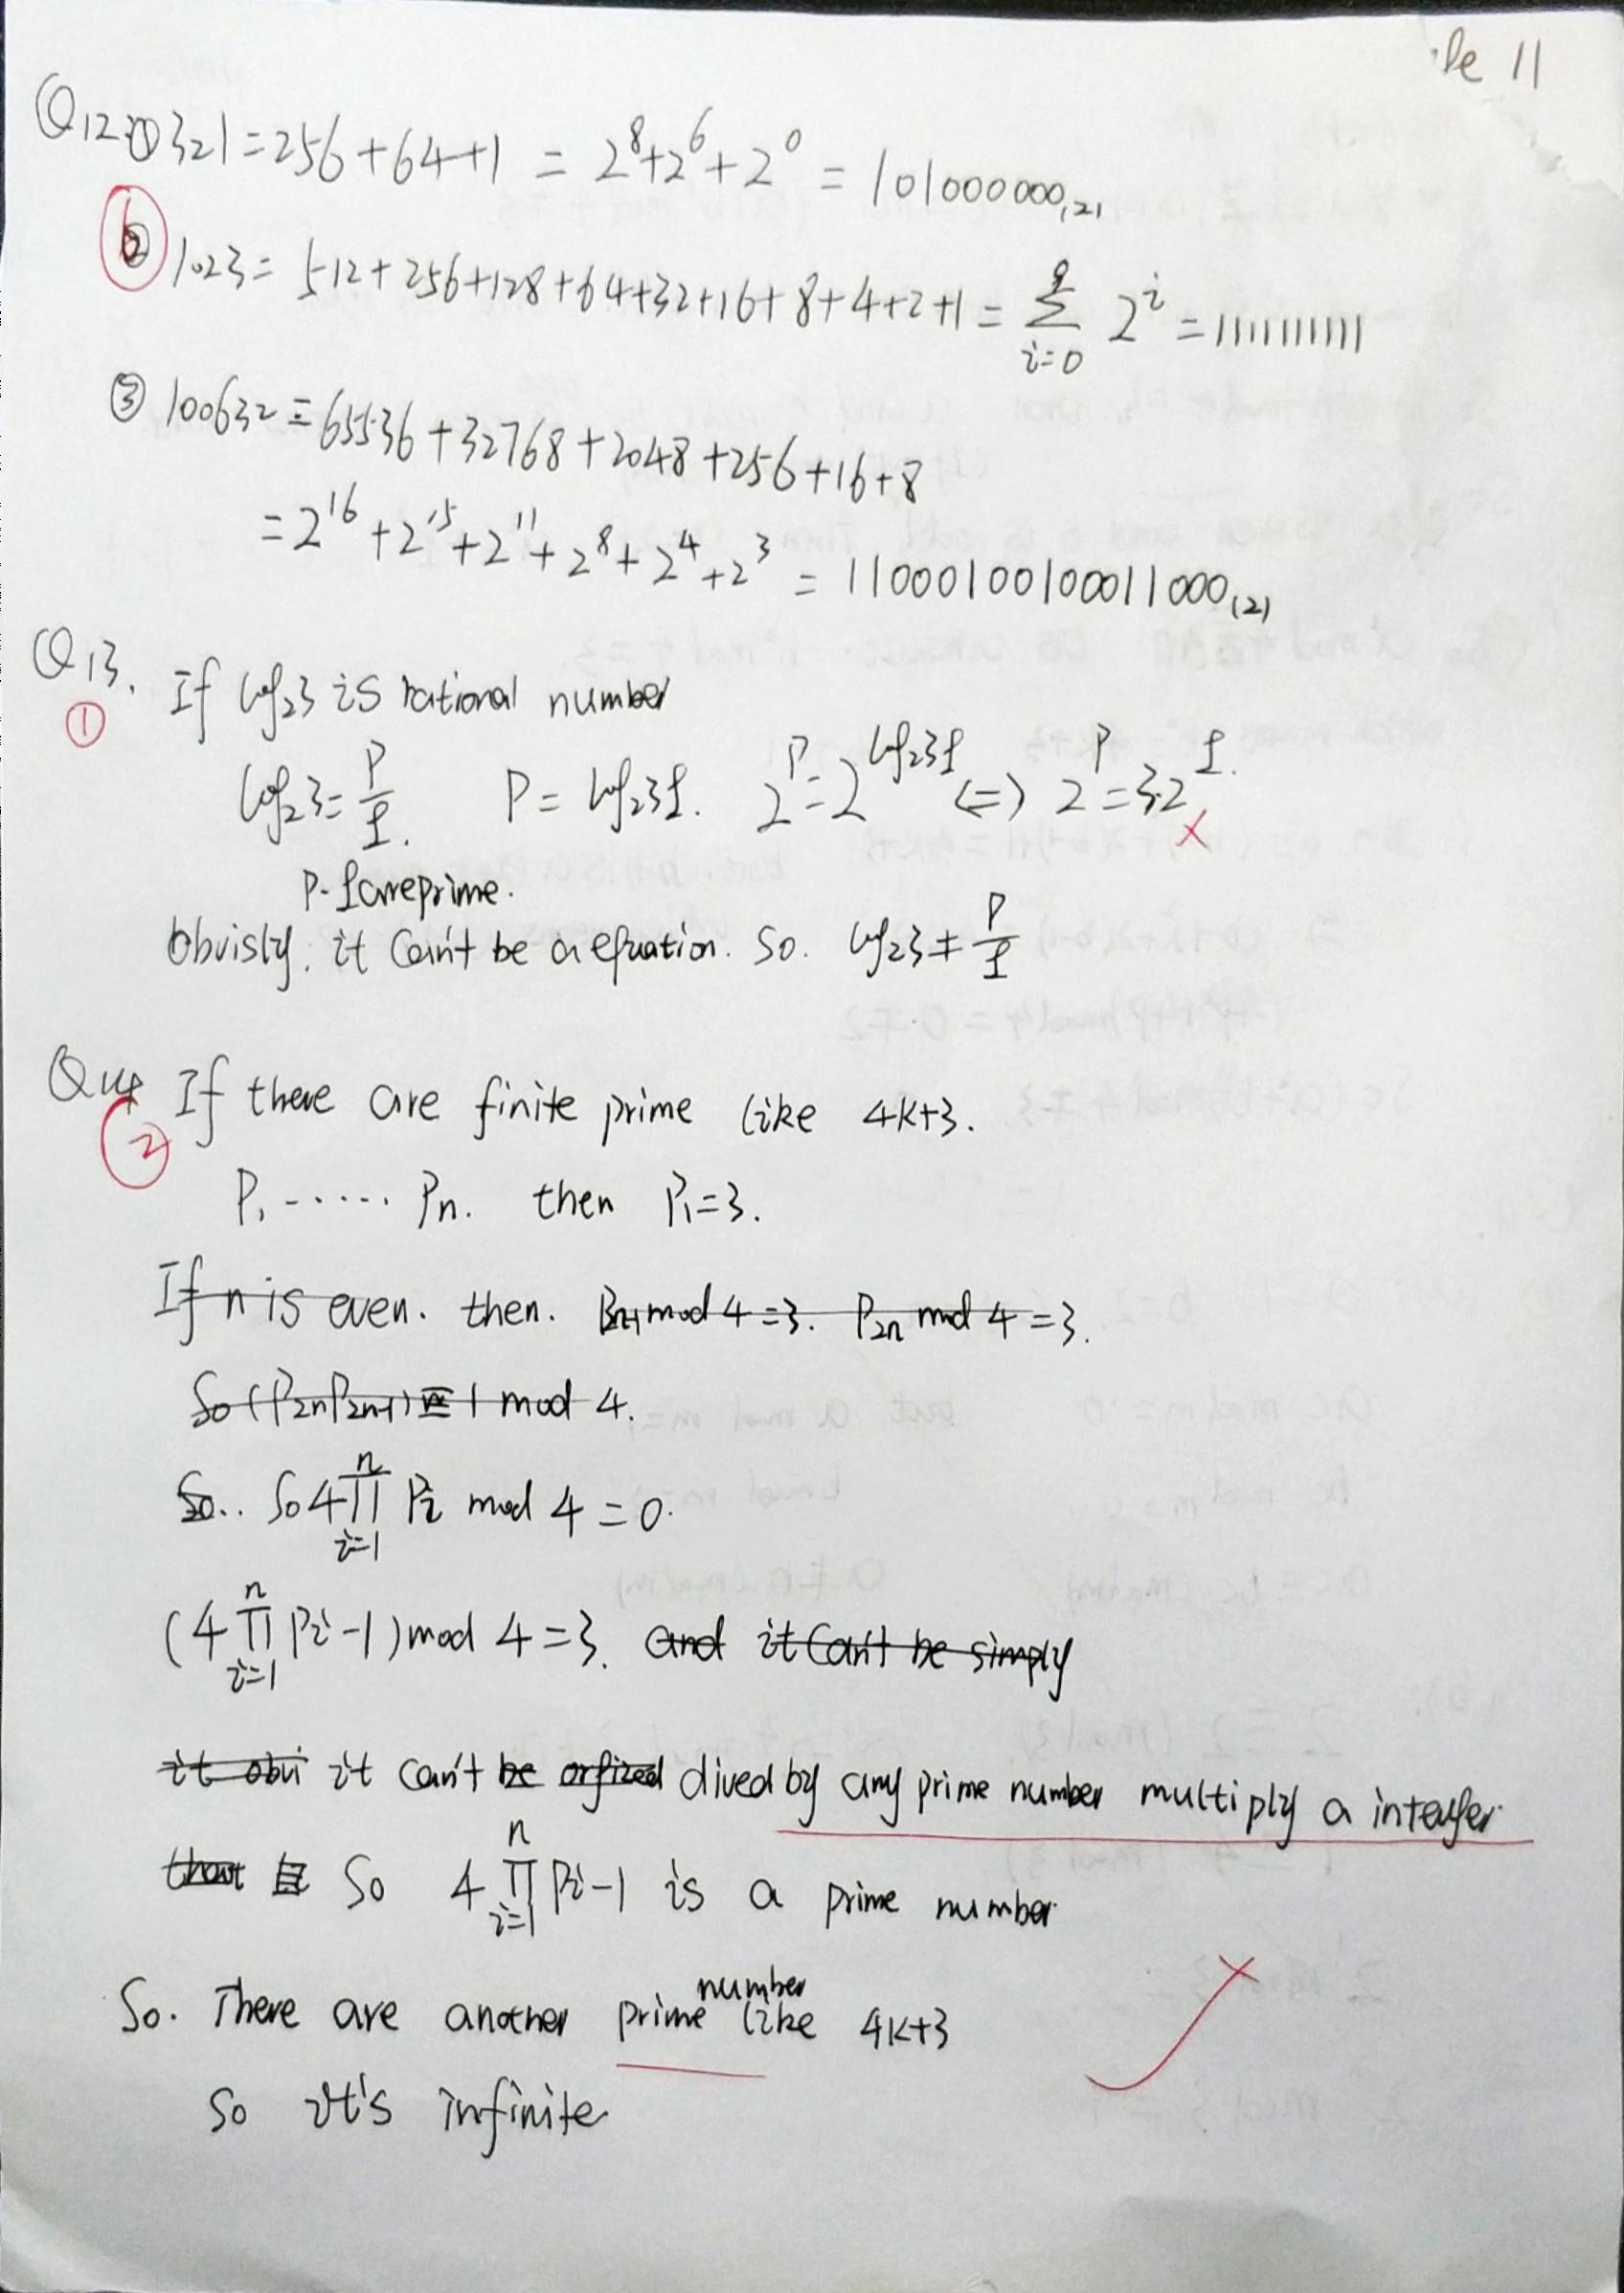 le 11
Q12 ① 321 = 256 + 64 + 1 = 2^8 + 2^6 + 2^0 = 101000000,(2)
6
② 1023 = 512 + 256 + 128 + 64 + 32 + 16 + 8 + 4 + 2 + 1 = \sum_{i=0}^{9} 2^i = 1111111111
③ 100632 = 65536 + 32768 + 2048 + 256 + 16 + 8
= 2^16 + 2^15 + 2^11 + 2^8 + 2^4 + 2^3 = 11000100100011000 (2)
Q13. If log_2 3 is rational number
①
log_2 3 = P/q. P = log_2 3 q. 2^P = 2^{log_2 3 q} <=> 2^P = 3·2^q.
×
P. q are prime.
Obvisly. it can't be a equation. So. log_2 3 ≠ P/q
Q14 If there are finite prime like 4k+3.
2
P_1 ------ P_n. then P_1 = 3.
If n is even. then. P_{2n-1} mod 4 = 3. P_{2n} mod 4 = 3.
So (P_{2n} P_{2n-1}) ≡ 1 mod 4.
So.. So 4 \prod_{i=1}^{n} P_i mod 4 = 0.
(4 \prod_{i=1}^{n} P_i - 1) mod 4 = 3. and it can't be simply
it obvi it can't be dived by any prime number multiply a integer.
So 4 \prod_{i=1}^{n} P_i - 1 is a prime number
So. There are another prime number like 4k+3
So it's infinite